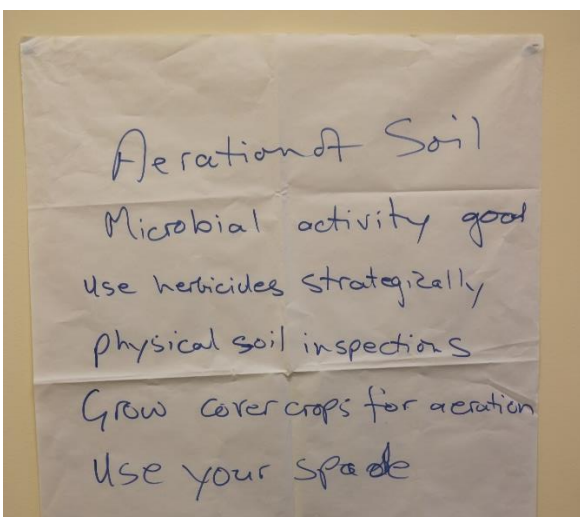 Aeration of Soil
Microbial activity good
use herbicides strategically
physical soil inspections
Grow cover crops for aeration
Use your spade